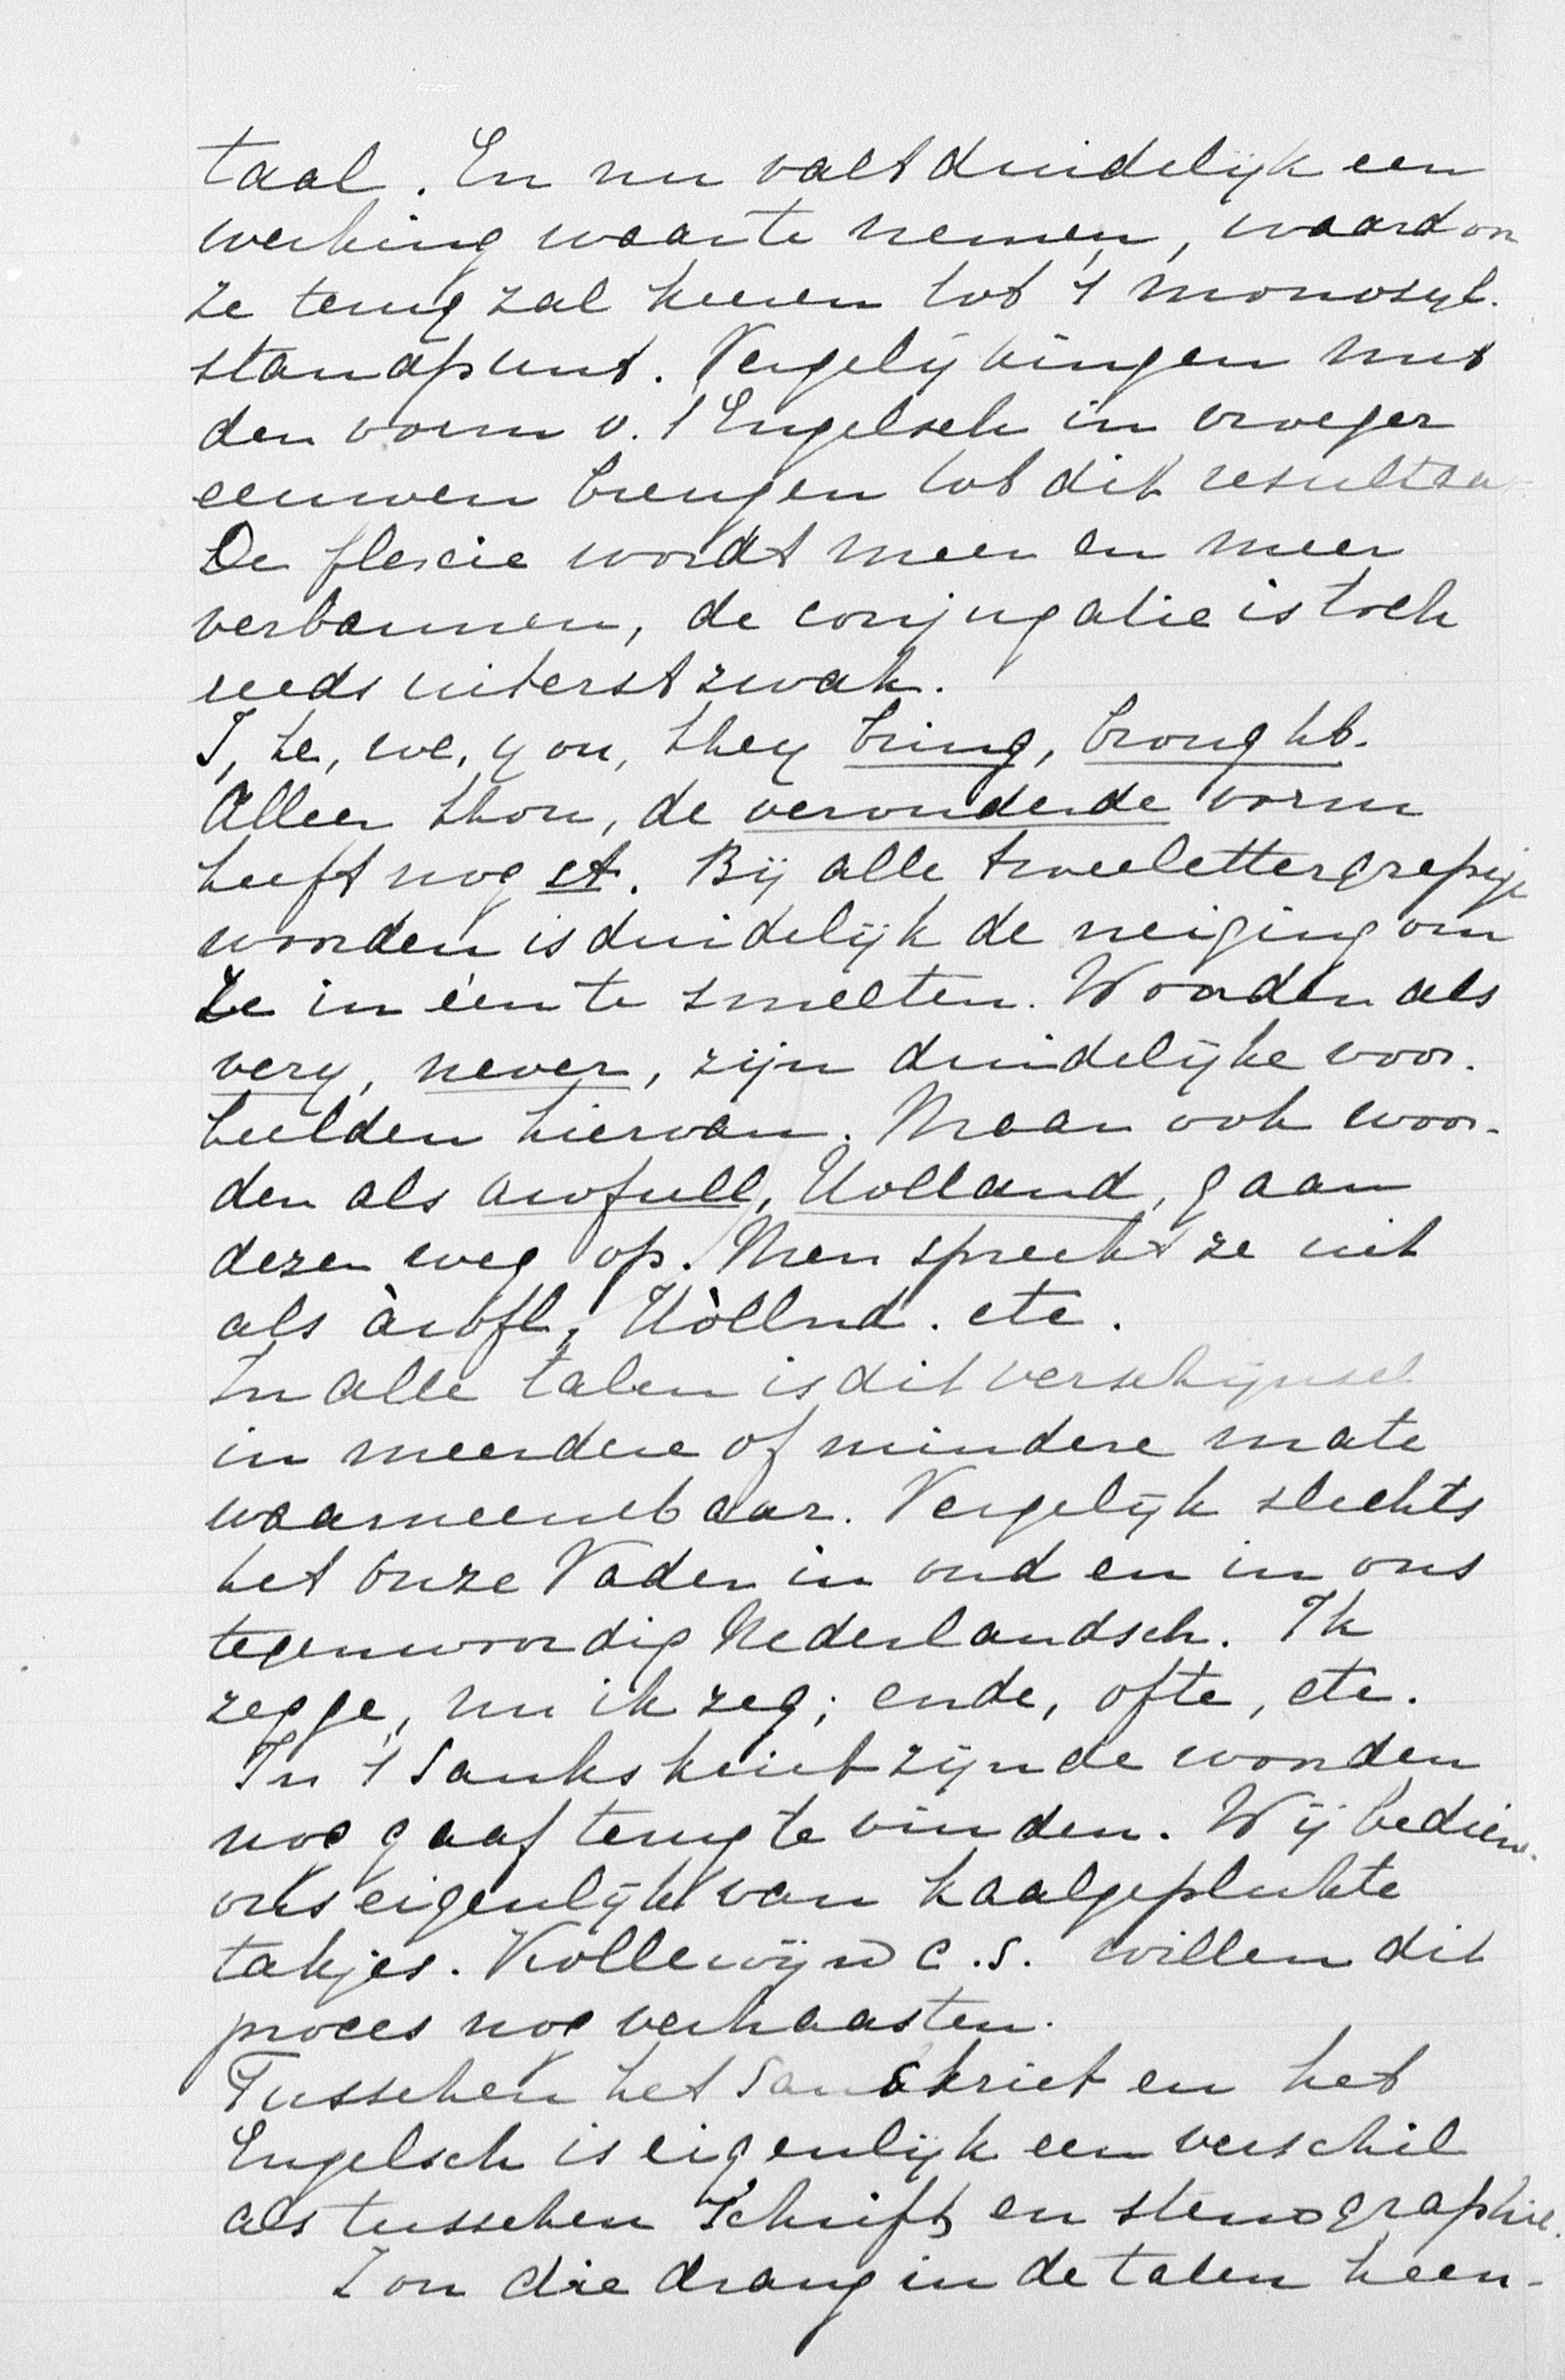 taal. En nu valt duidelijk een
werking waar te nemen, waardoor
ze terug zal keeren tot 't monosyl.
standpunt. Vergelijkingen met
den vorm v. 't Engelsch in vroeger
eeuwen brengen tot dit resultaat
De flexie wordt meer en meer
verbannen, de conjugatie is toch
reeds uiterst zwak.
I, he, we, you, they bring, brought.
Alleen thou, de verouderde vorm
heeft nog st. Bij alle tweelettergrepige
woorden is duidelijk de neiging om
ze in één te smelten. Woorden als
very, never, zijn duidelijke voor-
beelden hiervan. Maar ook woor-
den als awfull, Holland, gaan
dezen weg op. Men spreekt ze uit
als àwfl, Hòllnd. etc.
In alle talen is dit verschijnsel
in meerdere of mindere mate
waarneembaar. Vergelijk slechts
het Onze Vader in oud en in ons
tegenwoordig Nederlandsch. Ik
zegge, nu ik zeg; ende, ofte, etc.
In 't Sankskriet zijn de woorden
nog gaaf terug te vinden. Wij bedien.
ons eigenlijk van kaalgeplukte
takjes. Kollewijn c.s. willen dit
proces nog verhaasten.
Tusschen het Sanskriet en het
Engelsch is eigenlijk een verschil
als tusschen Schrift en stenographie.
Zou die drang in de talen heen-